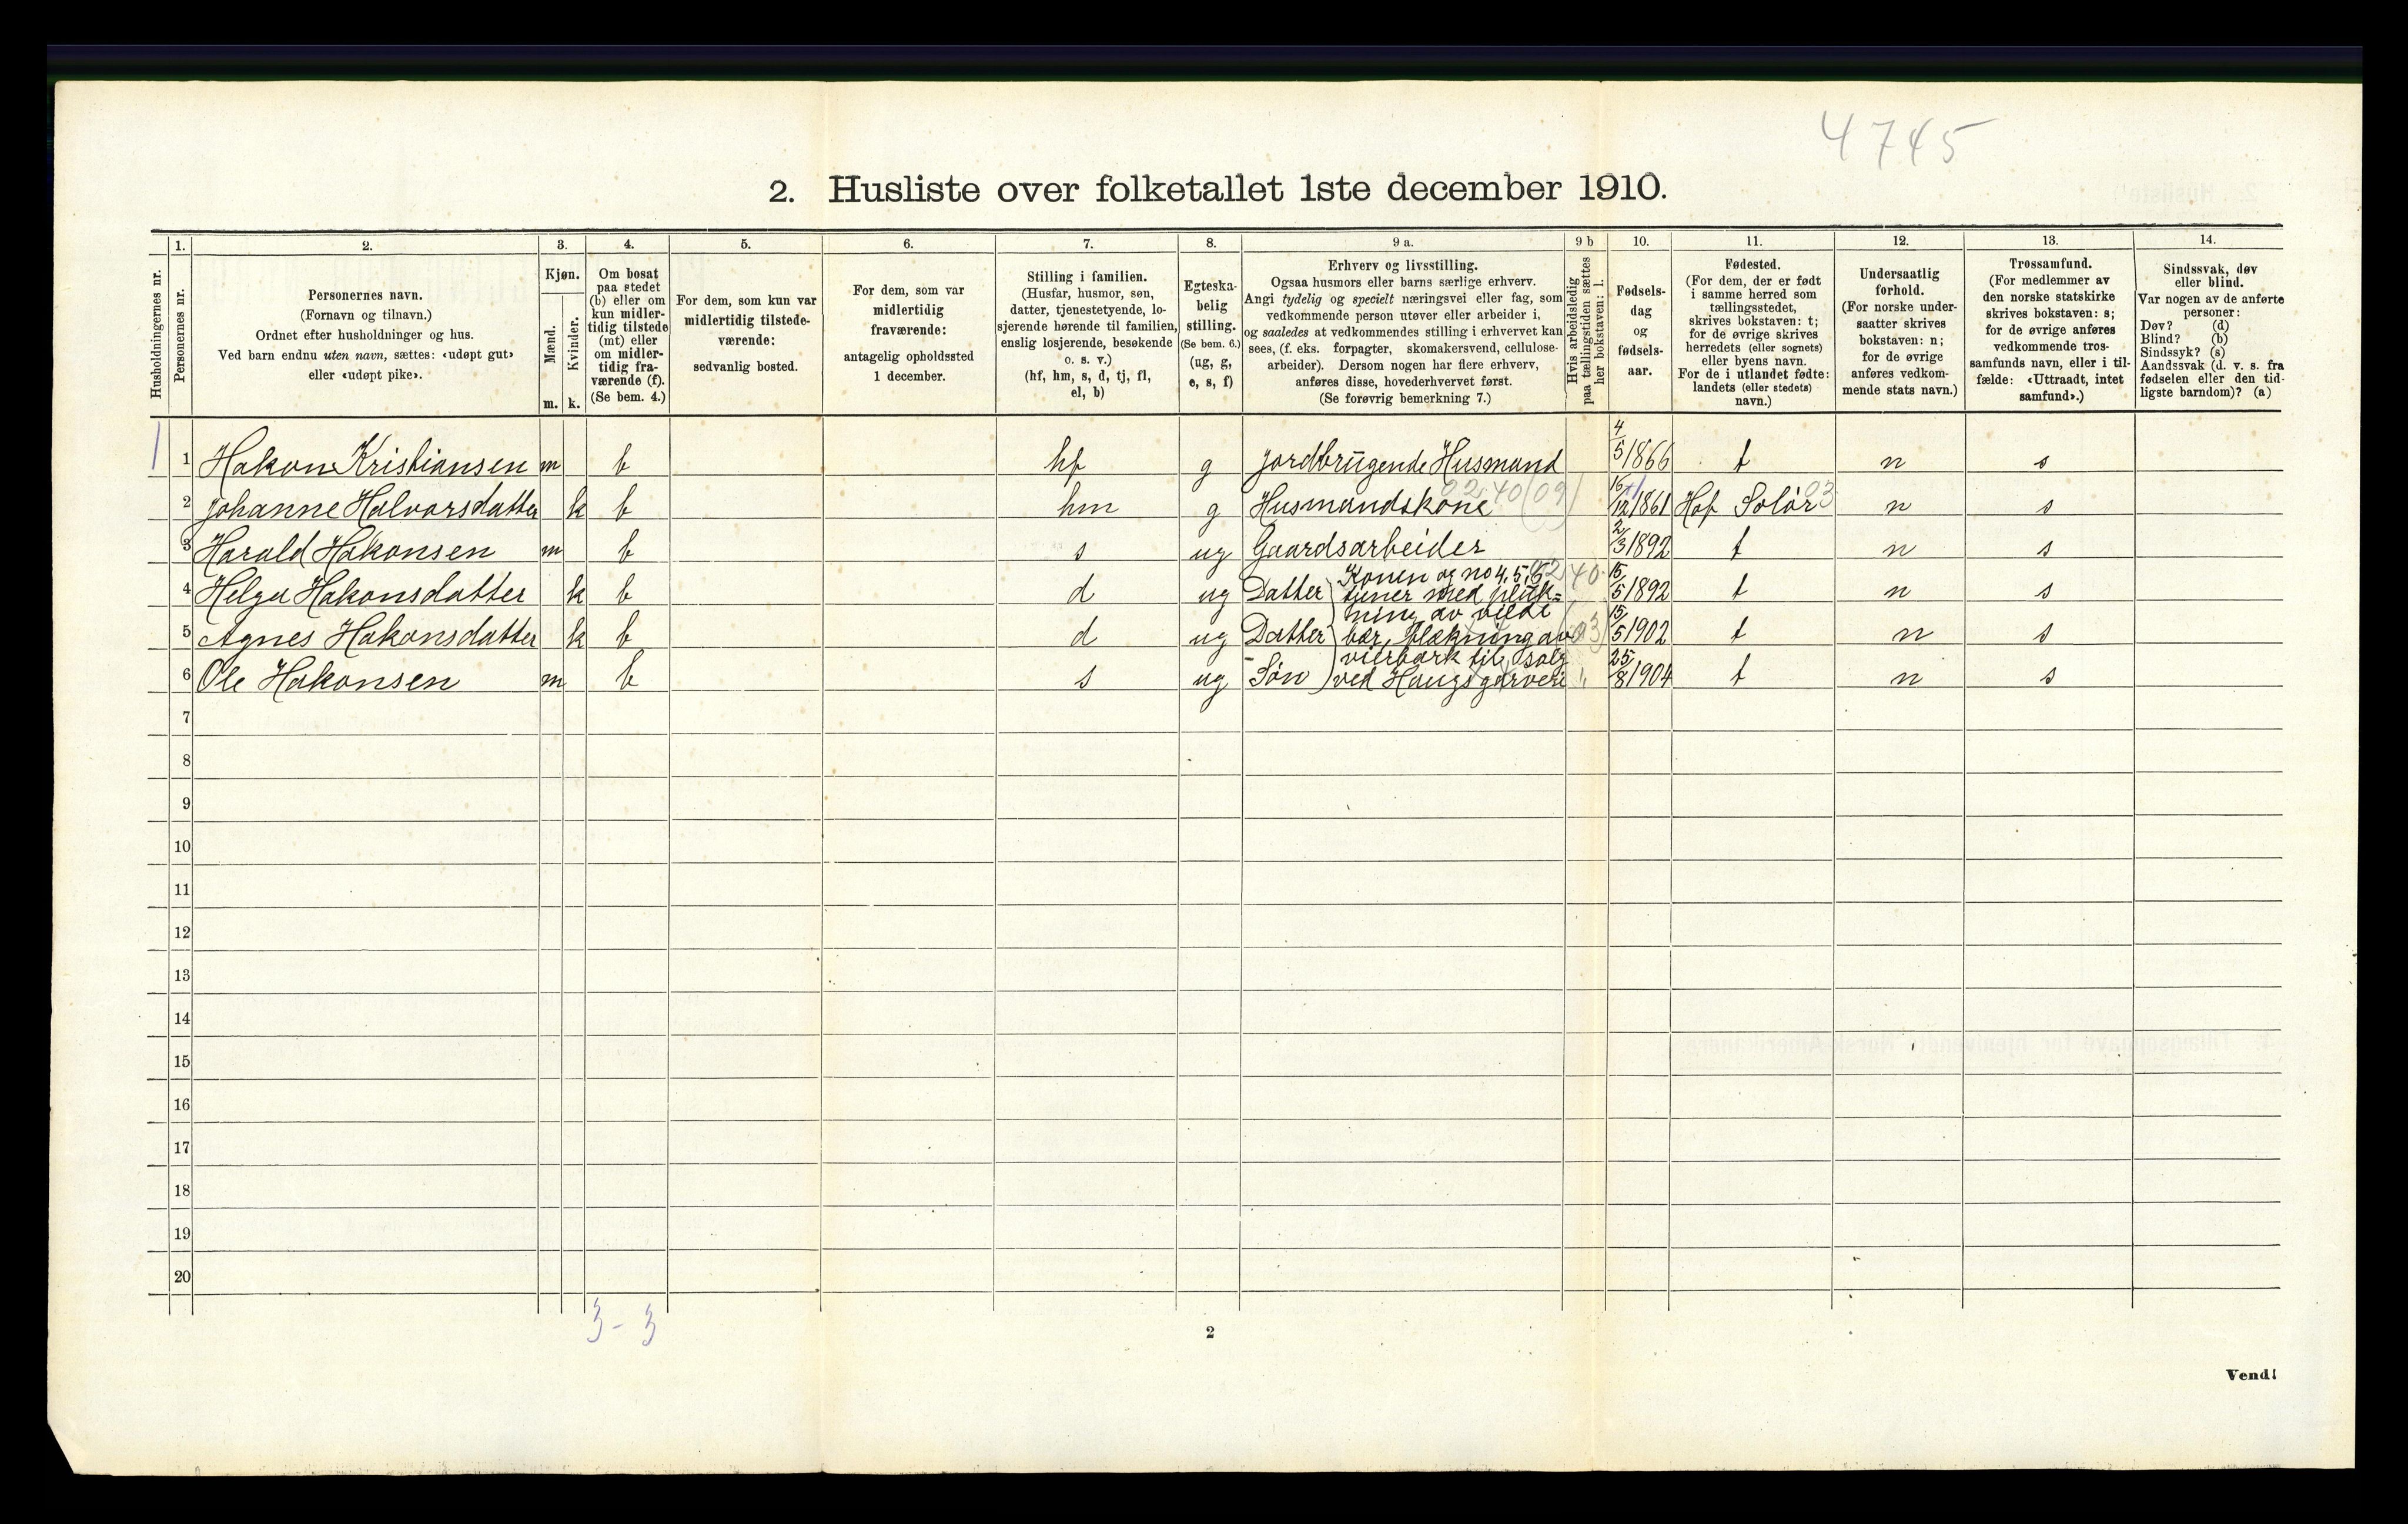 4745
2. Husliste over folketallet 1ste december 1910.
Husholdningernes nr.
1.
Personernes nr.
2.
Personernes navn.
(Fornavn og tilnavn.)
Ordnet efter husholdninger og hus.
Ved barn endnu uten navn, sættes: «udøpt gut»
eller «udøpt pike».
3.
Kjøn.
Mænd.
Kvinder.
m. k.
4.
Om bosat
paa stedet
(b) eller om
kun midler-
tidig tilstede
(mt) eller
om midler-
tidig fra-
værende (f).
(Se bem. 4.)
5.
For dem, som kun var
midlertidig tilstede-
værende:
sedvanlig bosted.
6.
For dem, som var
midlertidig
fraværende:
antagelig opholdssted
1 december.
7.
Stilling i familien.
(Husfar, husmor, søn,
datter, tjenestetyende, lo-
sjerende hørende til familien,
enslig losjerende, besøkende
o. s. v.)
(hf, hm, s, d, tj, fl,
el, b)
8.
Egteska-
belig
stilling.
(Se bem. 6.)
(ug, g,
e, s, f)
9 a.
Erhverv og livsstilling.
Ogsaa husmors eller barns særlige erhverv.
Angi tydelig og specielt næringsvei eller fag, som
vedkommende person utøver eller arbeider i,
og saaledes at vedkommendes stilling i erhvervet kan
sees, (f. eks. forpagter, skomakersvend, cellulose-
arbeider). Dersom nogen har flere erhverv,
anføres disse, hovederhvervet først.
(Se forøvrig bemerkning 7.)
9 b
Hvis arbeidsledig
paa tællingstiden sættes
her bokstaven: l.
10.
Fødsels-
dag
og
fødsels-
aar.
11.
Fødested.
(For dem, der er født
i samme herred som
tællingsstedet,
skrives bokstaven: t;
for de øvrige skrives
herredets (eller sognets)
eller byens navn.
For de i utlandet fødte:
landets (eller stedets)
navn.)
12.
Undersaatlig
forhold.
(For norske under-
saatter skrives
bokstaven: n;
for de øvrige
anføres vedkom-
mende stats navn.)
13.
Trossamfund.
(For medlemmer av
den norske statskirke
skrives bokstaven: s;
for de øvrige anføres
vedkommende tros-
samfunds navn, eller i til-
fælde: «Uttraadt, intet
samfund».)
14.
Sindssvak, døv
eller blind.
Var nogen av de anførte
personer:
Døv? (d)
Blind? (b)
Sindssyk? (s)
Aandssvak (d. v. s. fra
fødselen eller den tid-
ligste barndom)? (a)
1 1 Hakon Kristiansen m b hf g Jordbrugende Husmand 4/5 1866 t n s
02 40 (09)
2 Johanne Halvorsdatter k b hm g Husmandskone 16/12 1861 Hof Solør 03 n s
3 Harald Hakonsen m b s ug Gaardsarbeider 2/3 1892 t n s
4 Helga Hakonsdatter k b d ug Datter 15/5 1892 t n s
5 Agnes Hakonsdatter k b d ug Datter 15/5 1902 t n s
6 Ole Hakonsen m b s ug Søn 25/8 1904 t n s
Konen og no 4, 5, 6
tjener med pluk-
ning av vilde
bær, flækning av
vierbark til salg
ved Haugs garveri
7
8
9
10
11
12
13
14
15
16
17
18
19
20
3 - 3
2
Vend!